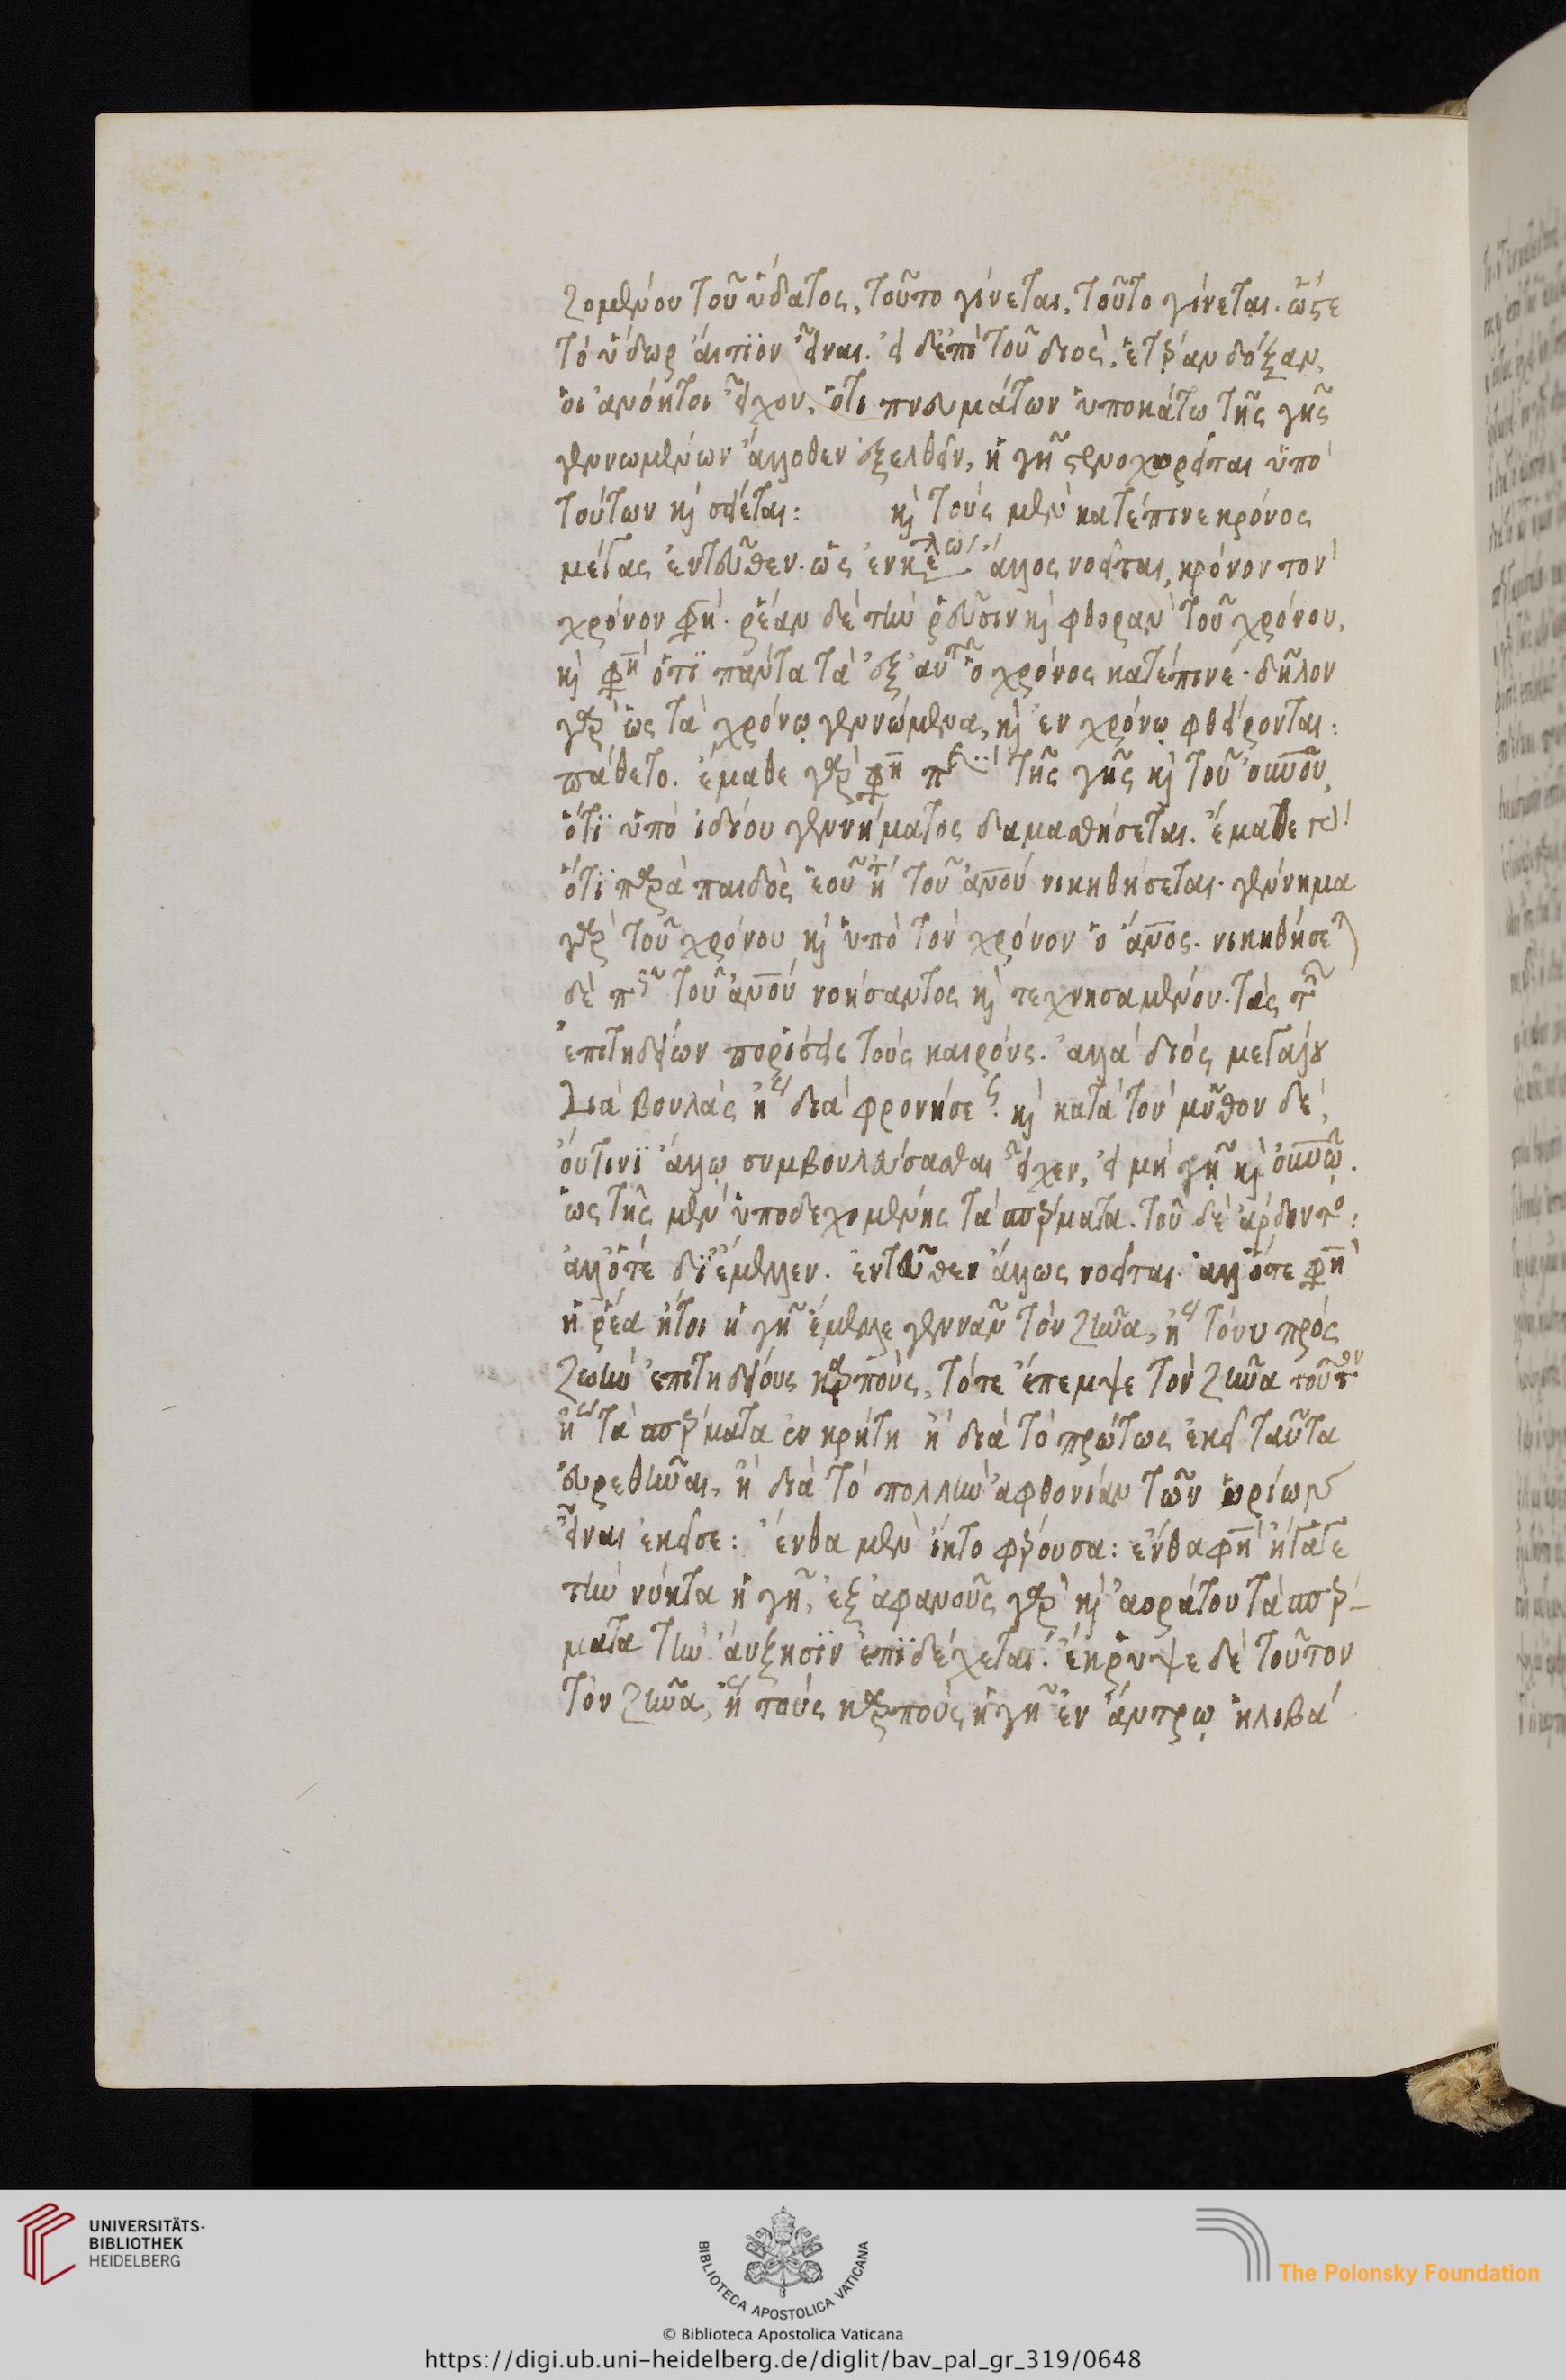 ζομένου τοῦ ὕδατος, τοῦτο γίνεται, τοῦτο γίνεται. ὥστε
τὸ ὕδωρ αἴτιον εἶναι. εἰ δ' ἐπὶ τοῦ διὸς, ἑτέραν δόξαν,
οἱ ἀνόητοι εἶχον, ὅτι πνευμάτων ὑποκάτω τῆς γῆς
γεννωμένων ἄλλοθεν ἐξελθεῖν, ἡ γῆ στενοχωρεῖται ὑπὸ
τούτων καὶ σείεται: καὶ τοὺς μὲν κατέπινε κρόνος
μέγας ἐντεῦθεν. ὡς ἄλλος νοεῖται, κρόνον τὸν
χρόνον φη. ῥέαν δὲ τὴν ῥεῦσιν καὶ φθορὰν τοῦ χρόνου,
καὶ φη ὅτι πάντα τὰ ἐξ αὐτῆς ὁ χρόνος κατέπινε. δῆλον
γὰρ ὡς τὰ χρόνῳ γεννώμενα, καὶ ἐν χρόνῳ φθείρονται:
πεύθετο. ἔμαθε γὰρ φη τῆς γῆς καὶ τοῦ οὐνοῦ,
ὅτι ὑπὸ ἰδίου γεννήματος δαμασθήσεται. ἔμαθε
ὅτι παρὰ παιδὸς τοῦ ἀνου νικηθήσεται. γέννημα
γὰρ τοῦ χρόνου καὶ ὑπὸ τὸν χρόνον ὁ ἄνος. νικηθήσε
δὲ τοῦ ἀνου νοήσαντος καὶ τεχνησαμένου. τὰς τῶν
ἐπιτηδείων πορίσεις τοὺς καιρούς. ἀλλὰ διὸς μεγάλου
διὰ βουλὰς ἤ διὰ φρονήσεις. καὶ κατὰ τὸν μῦθον δὲ,
οὔτινι ἄλλῳ συμβουλεύσασθαι εἶχεν, εἰ μὴ γῇ καὶ οὐνῶ.
ὡς τῆς μὲν ὑποδεχομένης τὰ σπέρματα. τοῦ δὲ ἄρδοντος:
ἀλλ' ὅτε δι' ἔμελλεν. ἐντεῦθεν ἄλλως νοεῖται. ἀλλ' ὅτε φη
ἡ ῥέα ἤτοι ἡ γῆ ἔμελλε γεννᾶν τὸν ζῆνα, ἤ τοὺς πρὸς
ζωὴν ἐπιτηδείους καρποὺς, τότε ἔπεμψε τὸν ζῆνα τοῦτον
ἤ τὰ σπέρματα ἐν κρήτη ἢ διὰ τὸ πρώτως ἐκεῖ ταῦτα
εὑρεθῆναι, ἢ διὰ τὸ πολλὴν ἀφθονίαν τῶν ὡρίων
εἶναι ἐκεῖσε: ἔνθα μὲν ἵκτο φέρουσα: ἔνθα φη
τὴν νύκτα ἡ γῆ, ἐξ ἀφανοῦς γὰρ καὶ ἀοράτου τὰ σπέρ-
ματα τὴν αὔξησιν ἐπιδέχεται. ἔκρυψε δὲ τοῦτον
τὸν ζῆνα, ἤ τοὺς καρποὺς ἡ γῆ ἐν ἄντρῳ ἠλιβά
UNIVERSITÄTS-
BIBLIOTHEK
HEIDELBERG
BIBLIOTECA APOSTOLICA VATICANA
The Polonsky Foundation
© Biblioteca Apostolica Vaticana
https://digi.ub.uni-heidelberg.de/diglit/bav_pal_gr_319/0648